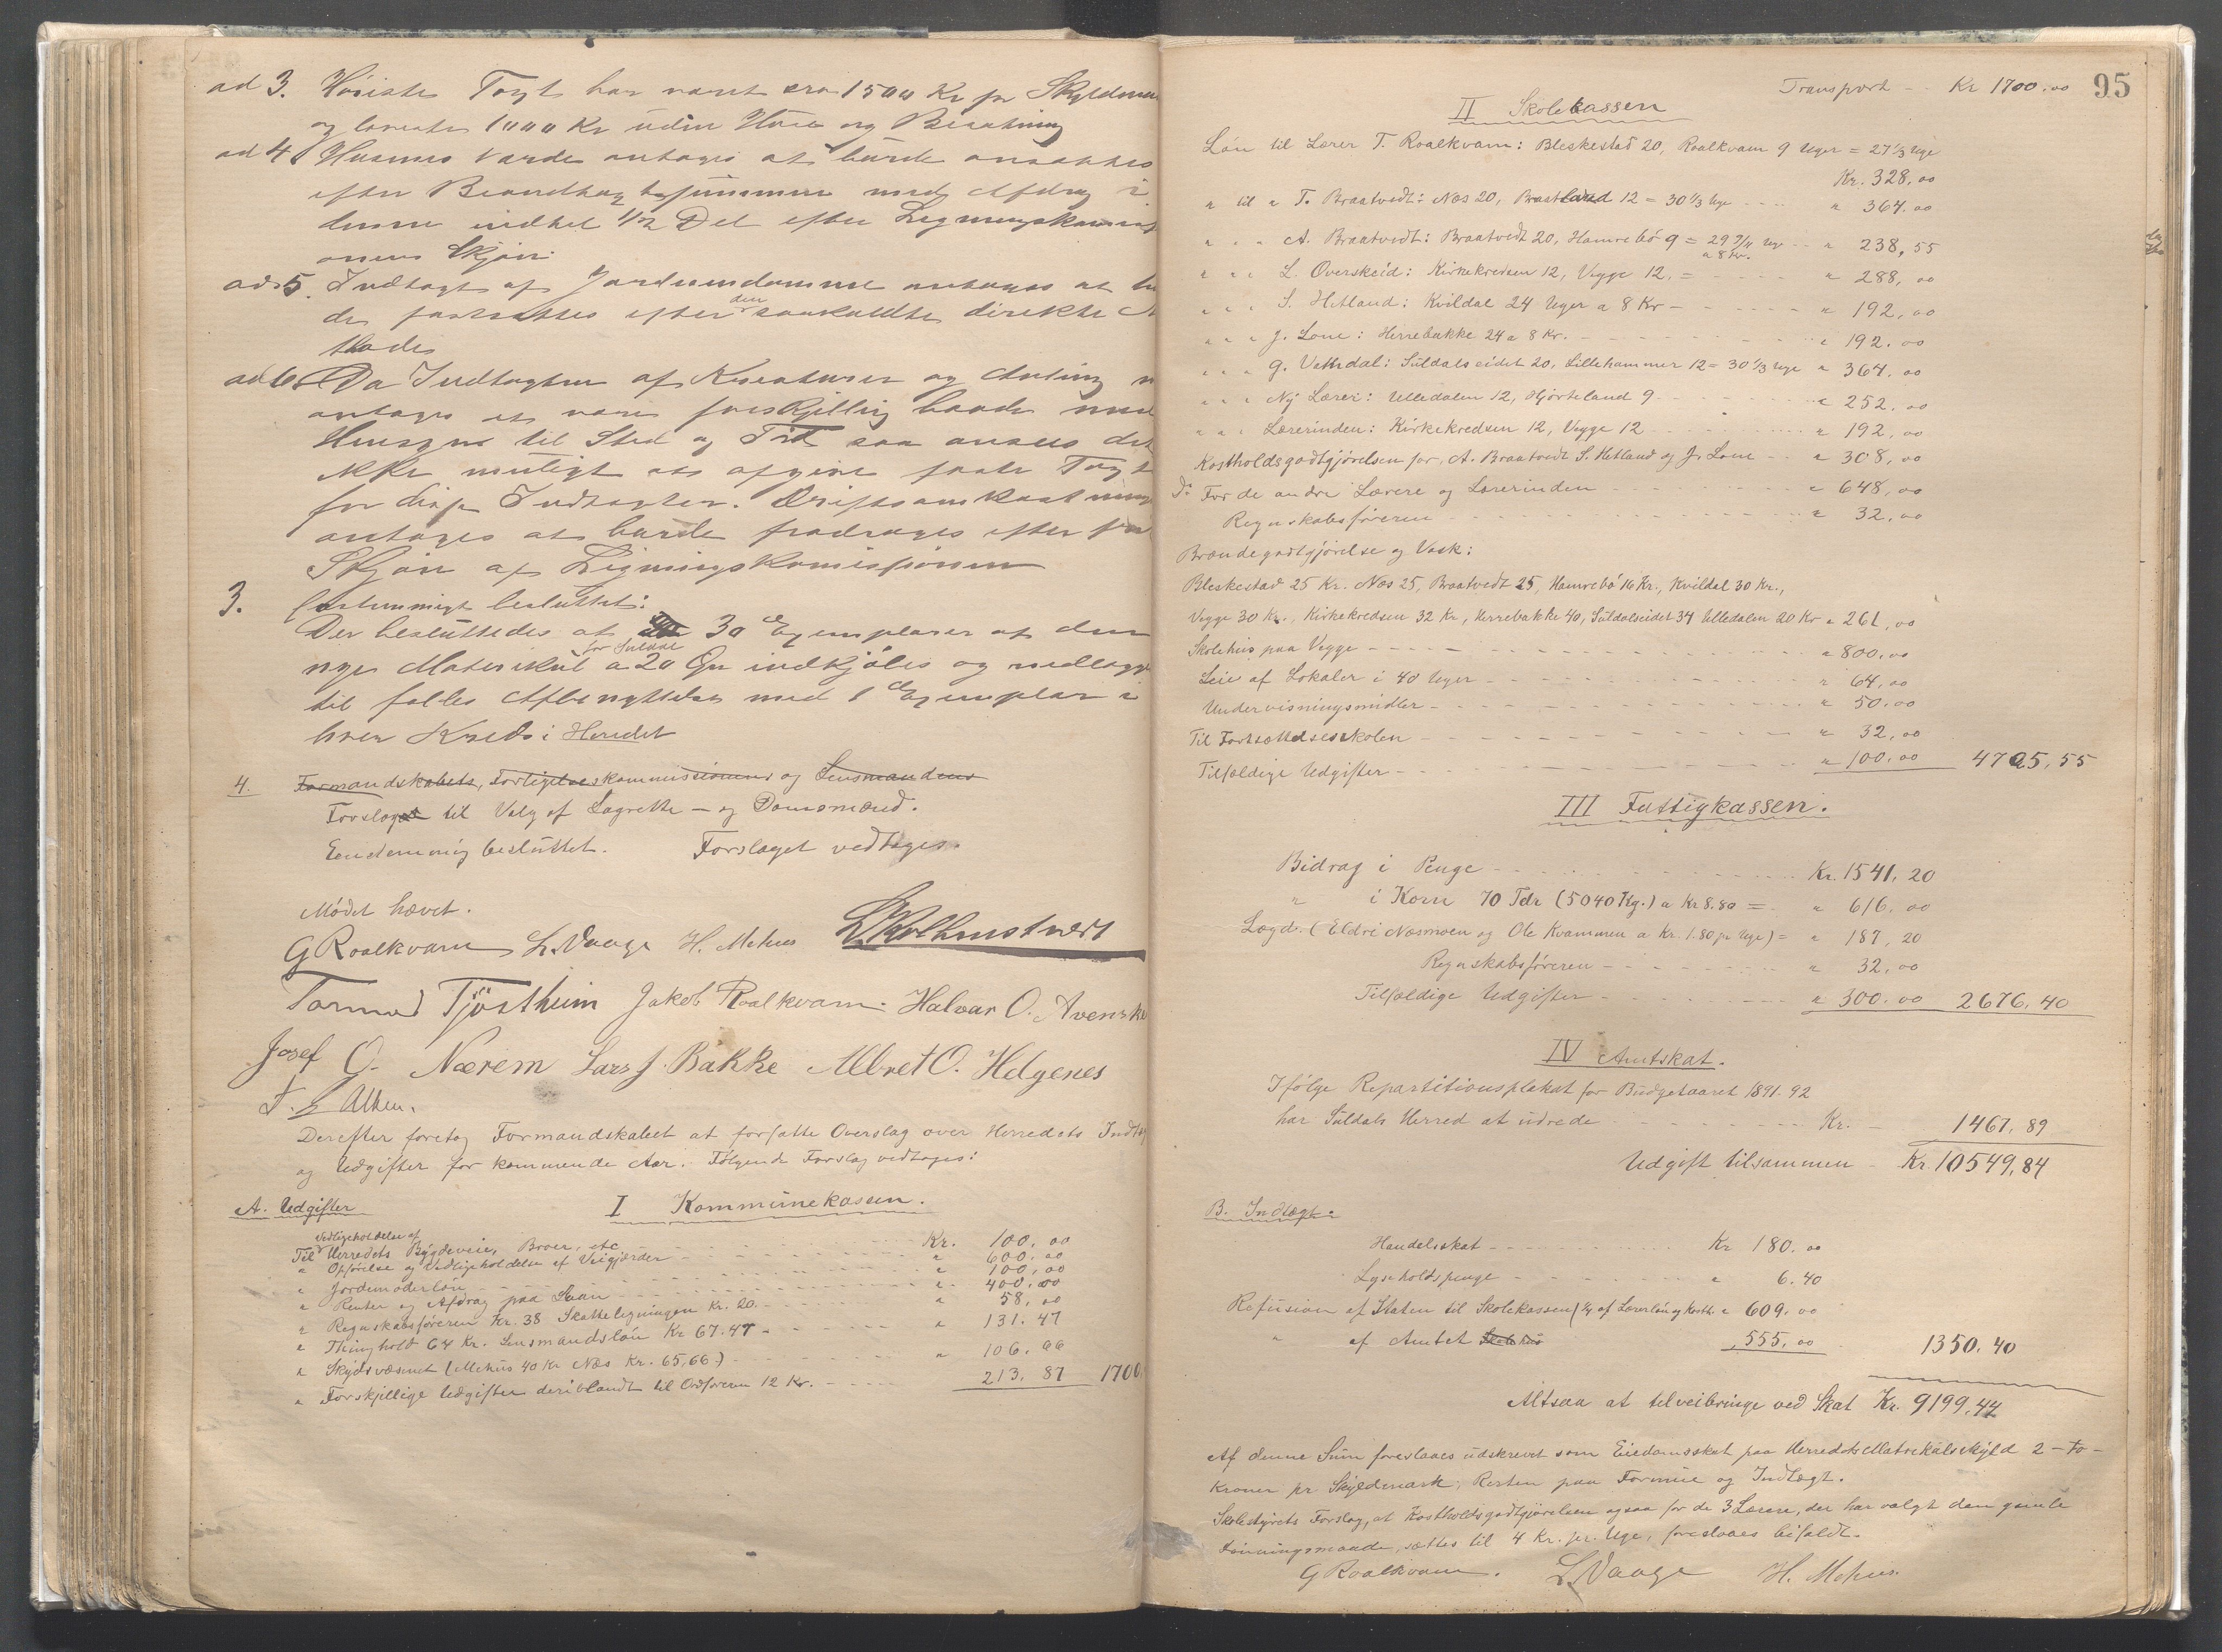 ad 3. Høieste Takst har været cra 1500 Kr pr Skyldmar
og laveste 1000 Kr uden Huse og Besætning
ad 4 Husenes Værdi antages at burde ansættes
efter Brandtaxtsummen med Afdrag i
denne indtil 1/2 Del efter Ligningskommis
onens Skjøn.
ad 5. Indtægt af Jordeiendomme antages at bu
de fastsættes efter den saakaldte direkte
Maade
ad 6 Da Indtægten af Kreaturer og Avling
antages at være forskjellig baade med
Hensyn til Sted og Tid saa ansees det
ikke muligt at afgive faste Taxt
for disse Indtægter. Driftsomkostning
antages at burde fradrages efter
Skjøn af Ligningskomissionen
3. Enstemmigt besluttet:
Der besluttedes at 30 Exemplarer af den
nye Matrikul for Suldal a 20 Øre indkjøbes og nedlægge
til fælles Afbenyttelse med 1 Exemplar i
hver Kreds i Herredet
4. Formandskabets, Forligelseskommissionens og Lensmandens
Forslag til Valg af Lagrette- og Domsmænd.
Enstemmig besluttet. Forslaget vedtages.
Mødet hævet.
G Roalkvam L. Vaage H. Mehus
Tormod Tjøstheim Jakob Roalkvam Halvar O. Avenske
Josef G. Nærem Lars J. Bakke Albret O. Helgenes
Derefter foretog Formandskabet at forfatte Overslag over Herredets Indtæg
og Udgifter for kommende Aar. Følgende Forslag vedtoges:
A. Udgifter I Kommunekassen.
Til Vedligeholdelse af Herredets Bygdeveie, Broer, etc - Kr. 100,00
" Opførelse og Vedligeholdelse af Veigjærder - " 600.00
" Jordemoderløn - " 100,00
" Renter og Afdrag paa Laan - " 400.00
" Regnskabsføreren Kr. 38 Skatteligningen Kr. 20. - " 58,00
" Thinghold 64 Kr. Lensmandsløn Kr 67.47 - " 131.47
" Skydsvæsenet (Mehus 40 Kr Næs Kr. 65,66) - " 106.66
" Forskjellige Udgifter deriblandt til Ordføreren 12 Kr. - 213.87 1700
95
Transport - Kr 1700.00
II Skolekassen
Løn til Lærer T. Roalkvam: Bleskestad 20, Roalkvam 9 Uger = 27 1/3 Uge
Kr. 328,00
" til " T. Braatvedt: Næs 20, Braatland 12 = 30 1/3 Uge - " 364.00
" " " A. Braatvedt: Braatvedt 20, Hamrebø 9 = 29 9/11 Uge a 8 Kr. - " 238,55
" " " L. Overskeid: Kirkekredsen 12, Vegge 12, = - " 288,00
" " " S. Hetland: Kvildal 24 Uger a 8 Kr - " 192,00
" " " J. Lone: Herrebakke 24 a 8 Kr. - " 192.00
" " " G. Vethdal: Suldalseidet 20, Lillehammer 12 = 30 1/3 Uge " 364.00
" " " Ny Lærer: Ulledalen 12, Hjorteland 9 - " 252.00
" " " Lærerinden: Kirkekredsen 12, Vegge 12 - " 192,00
Kostholdsgodtgjørelsen for A. Braatvedt S. Hetland og J. Lone - " 308,00
Do For de andre Lærere og Lærerinden - " 648,00
Regnskabsføreren - " 32,00
Brændegodtgjørelse og Vask:
Bleskestad 25 Kr. Næs 25, Braatvedt 25, Hamrebø 16 Kr., Kvildal 30 Kr.,
Vegge 30 Kr., Kirkekredsen 32 Kr, Herrebakke 40, Suldalseidet 34 Ulledalen 20 Kr " 261,00
Skolehus paa Vegge - " 800.00
Leie af Lokaler i 40 Uger - " 64,00
Undervisningsmidler - " 50.00
Til Fortsættelsesskolen - " 32,00
Tilfældige Udgifter - " 100.00 4705,55
III Fattigkassen.
Bidrag i Penge - Kr. 1541.20
" i Korn 70 Tdr (5040 Kg.) a Kr 8.80 = " 616.00
Lægd. (Eldri Næsmoen og Ole Kvammen a Kr. 1.80 pr Uge) = " 187,20
Regnskabsføreren - " 32,00
Tilfældige Udgifter - " 300.00 2676.40
IV Amtskat.
Ifølge Repartitionsplakat for Budgetaaret 1891.92
har Suldals Herred at udrede - Kr. - 1467.89
Udgift tilsammen - Kr. 10549,84
B. Indtægt.
Handelsskat - Kr 180.00
Lyseholdspenge - " 6.40
Refusion af Staten til Skolekassen (1/4 af Lærerløn og Kosth. " 609.00
" af Amtet 555.00 1350.40
Altsaa at tilveibringe ved Skat Kr. 9199,44
Af denne Sum foreslaaes udskrevet som Eiedomsskat paa Herredets Matrikulskyld 2 - to -
Kroner pr Skyldmark; Resten paa Formue og Indtægt.
Skolestyrets Forslag, at Kostholdsgodtgjørelsen ogsaa for de 3 Lærere, der har valgt den gamle
Lønningsmaade, sættes til 4 Kr. pr. Uge, foreslaaes bifaldt.
G Roalkvam. L. Vaage H. Mehus.